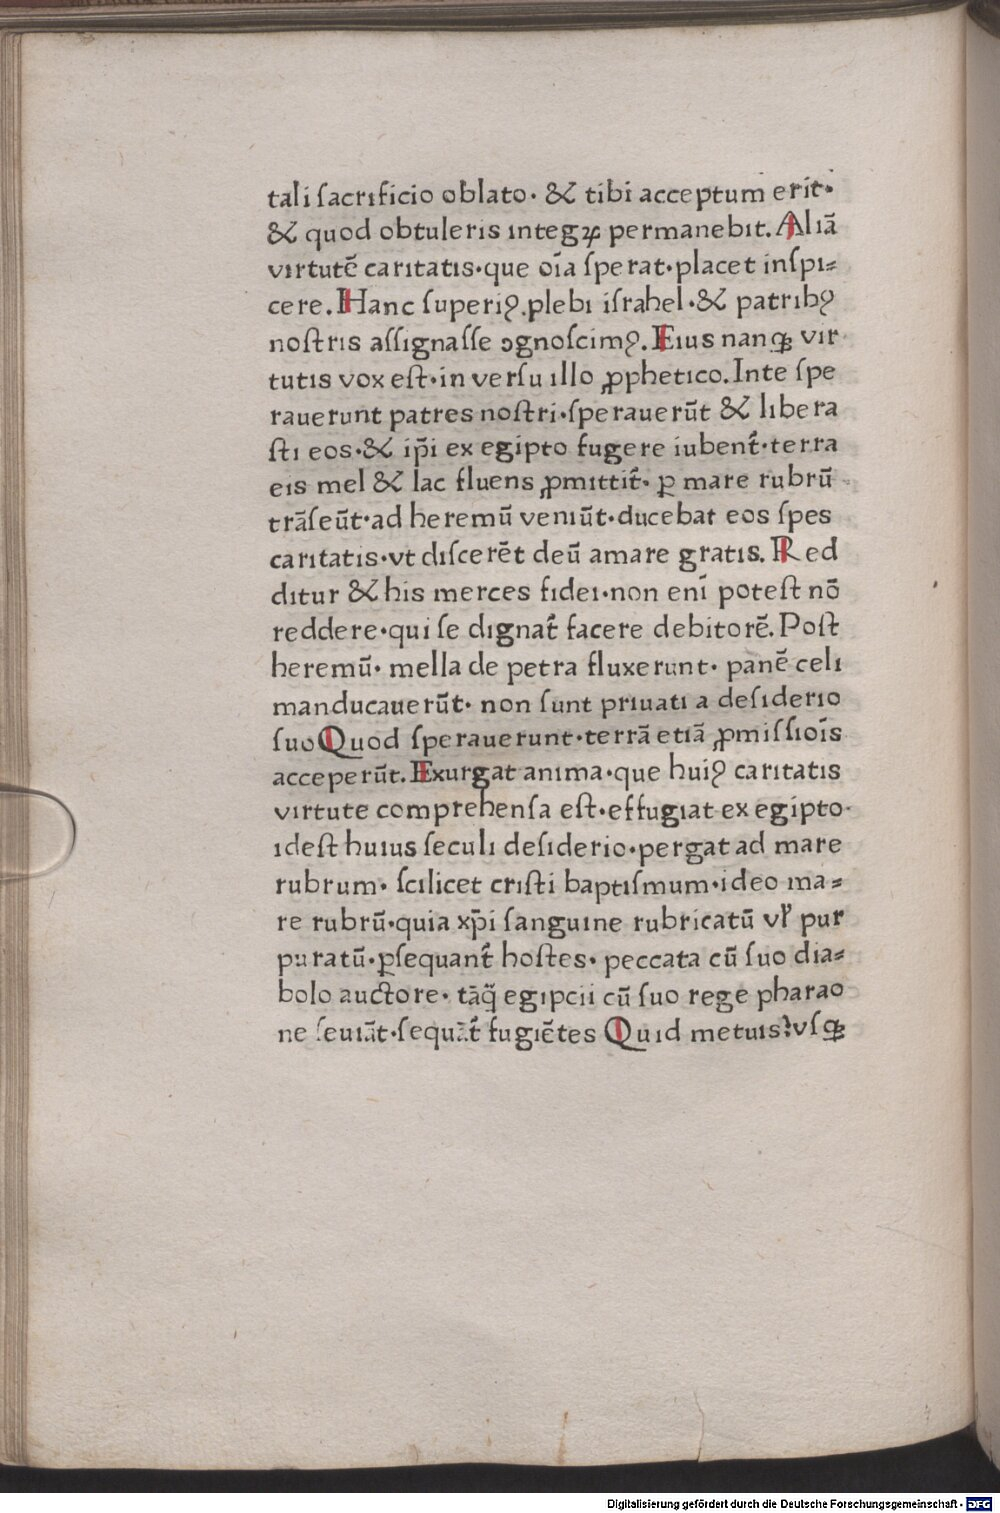 tali ſacrificio oblato· & tibi acceptum erit·
& quod obtuleris integꝝ permanebit. Aliã
virtutẽ caritatis·que oĩa ſperat·placet inſpi⸗
cere. Hanc ſuperiꝰ.plebi iſrahel·& patribꝰ
noſtris aſſignaſſe ꝯgnoſcimꝰ. Eius nanqꝫ vir
tutis vox eſt·in verſu illo ꝓphetico. Inte ſpe
rauerunt patres noſtri·ſperauerũt & libera
ſti eos·& ip̃i ex egipto fugere iubent᷑·terra
eis mel & lac fluens ꝓmittit᷑· ꝑ mare rubrũ
trãſeũt·ad heremũ veniũt·ducebat eos ſpes
caritatis·vt diſcerẽt deũ amare gratis. Red
ditur & his merces fidei·non enĩ poteſt nõ
reddere·qui ſe dignat᷑ facere debitorẽ. Poſt
heremũ· mella de petra fluxerunt· panẽ celi
manducauerũt· non ſunt priuati a deſiderio
ſuo Quod ſperauerunt·terrã etiã ꝓmiſſiõis
acceperũt. Exurgat anima·que huiꝰ caritatis
virtute comprehenſa eſt·effugiat ex egipto·
ideſt huius ſeculi deſiderio·pergat ad mare
rubrum· ſcilicet criſti baptiſmum·ideo ma⸗
re rubrũ·quia xp̃i ſanguine rubricatũ vl̓ pur
puratũ·ꝑſequant᷑ hoſtes· peccata cũ ſuo dia⸗
bolo auctore· tãq̃ egipcii cũ ſuo rege pharao
ne ſeuiãt·ſequãt᷑ fugiẽtes Quid metuis?vſqꝫ
Digitalisierung gefördert durch die Deutsche Forschungsgemeinschaft · DFG